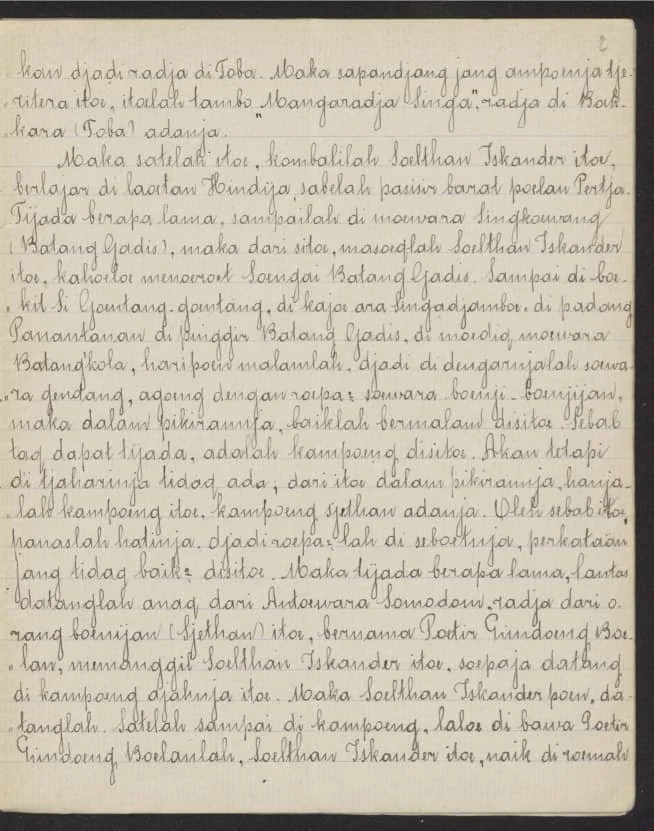 2
kan djadi radja di Toba. Maka sapandjang jang ampoenja tje-
"ritera itoe, itoelah tambo "Mangaradja Singa", radja di Bak-
"kara (Toba) adanja.
Maka satelah itoe, kombalilah Soelthan Iskander itoe,
berlajar di laoetan Hindija, sabelah pasisir barat poelau Pertja.
Tijada berapa lama, sampailah di moewara Singkoewang
(Batang Gadis), maka dari sitoe, masoeqlah Soelthan Iskander
itoe, kahoeloe menoeroet Soengai Batang Gadis. Sampai di boe-
"kit Si Goentang-goentang, di kajoe ara Singadjamboe, di padang
Panantanan di pinggir Batang Gadis, di moediq moewara
Batangkola, hari poen malamlah, djadi di dengarnjalah soewa-
"ra gendang, agoeng dengan roepa2 soewara boenji-boenjijan,
maka dalam pikirannja, baiklah bermalam disitoe. Sebab
taq dapat tijada, adalah kampoeng disitoe. Akan tetapi
di tjaharinja tidaq ada, dari itoe dalam pikirannja, hanja-
"lah kampoeng itoe, kampoeng sjethan adanja. Oleh sebab itoe,
panaslah hatinja, djadi roepa2lah di seboetnja, perkataän
jang tidaq baik2 disitoe. Maka tijada berapa lama, lantas
datanglah anaq dari Antoewara Somodom, radja dari o-
rang boenijan (Sjethan) itoe, bernama Poetir Gindoeng Boe-
"lan, memanggil Soelthan Iskander itoe, soepaja datang
di kampoeng ajahnja itoe. Maka Soelthan Iskander poen, da-
"tanglah. Satelah sampai di kampoeng, laloe di bawa Poetir
Gindoeng Boelanlah, Soelthan Iskander itoe, naik di roemah